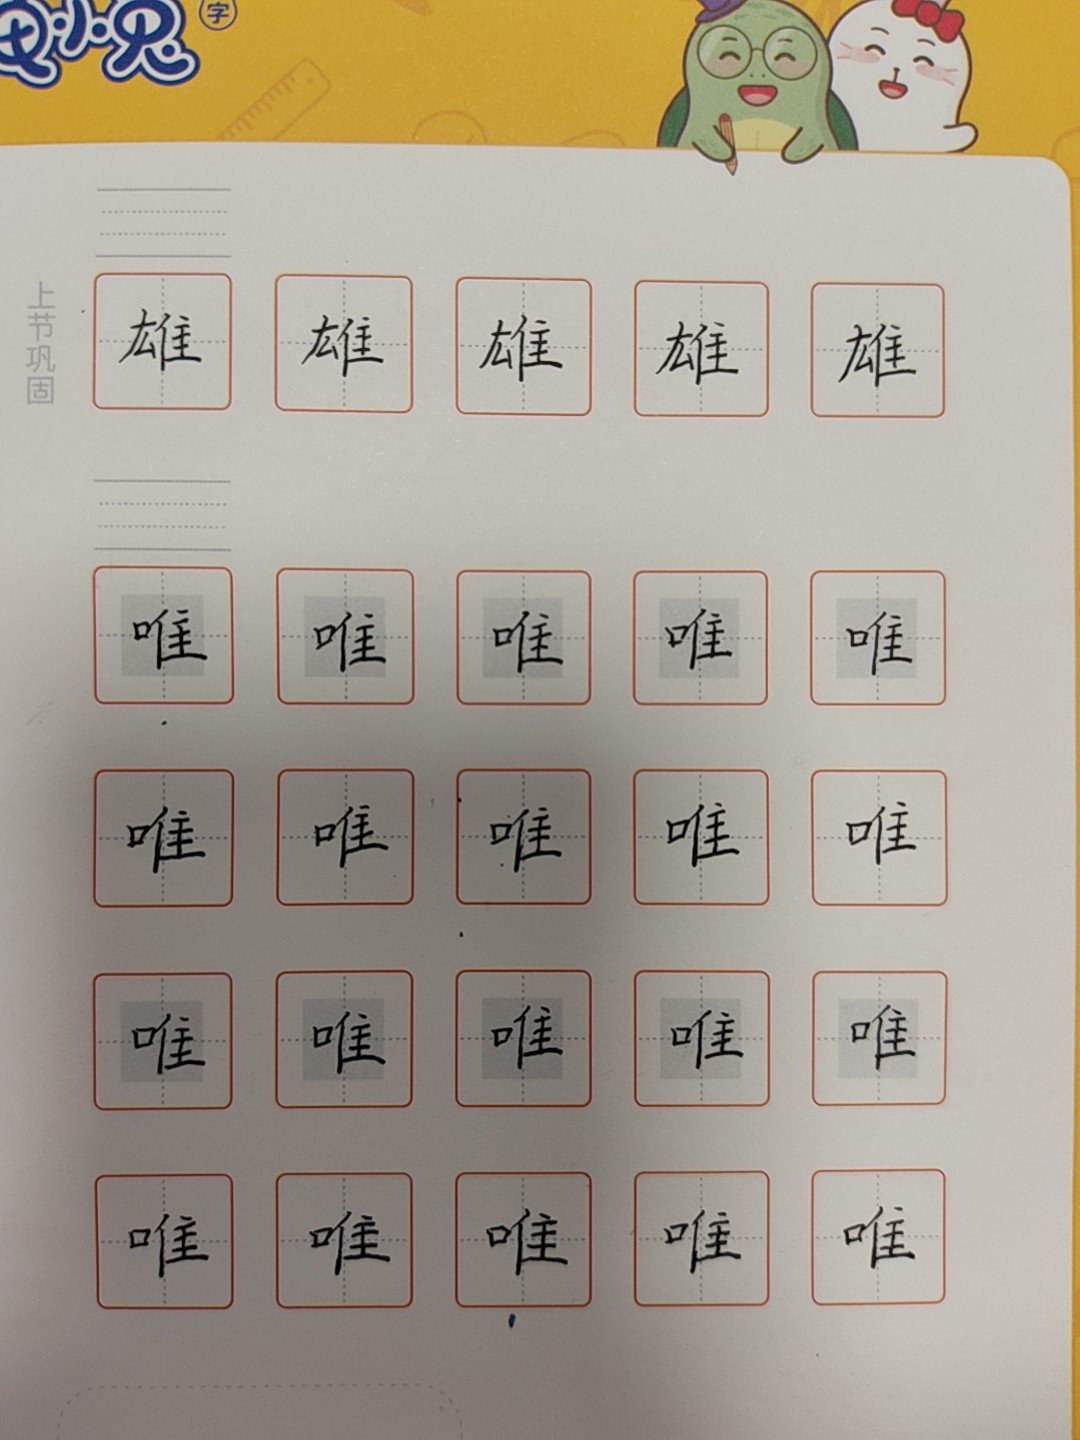 字
上节巩固
雄 雄 雄 雄 雄
唯 唯 唯 唯 唯
唯 唯 唯 唯 唯
唯 唯 唯 唯 唯
唯 唯 唯 唯 唯